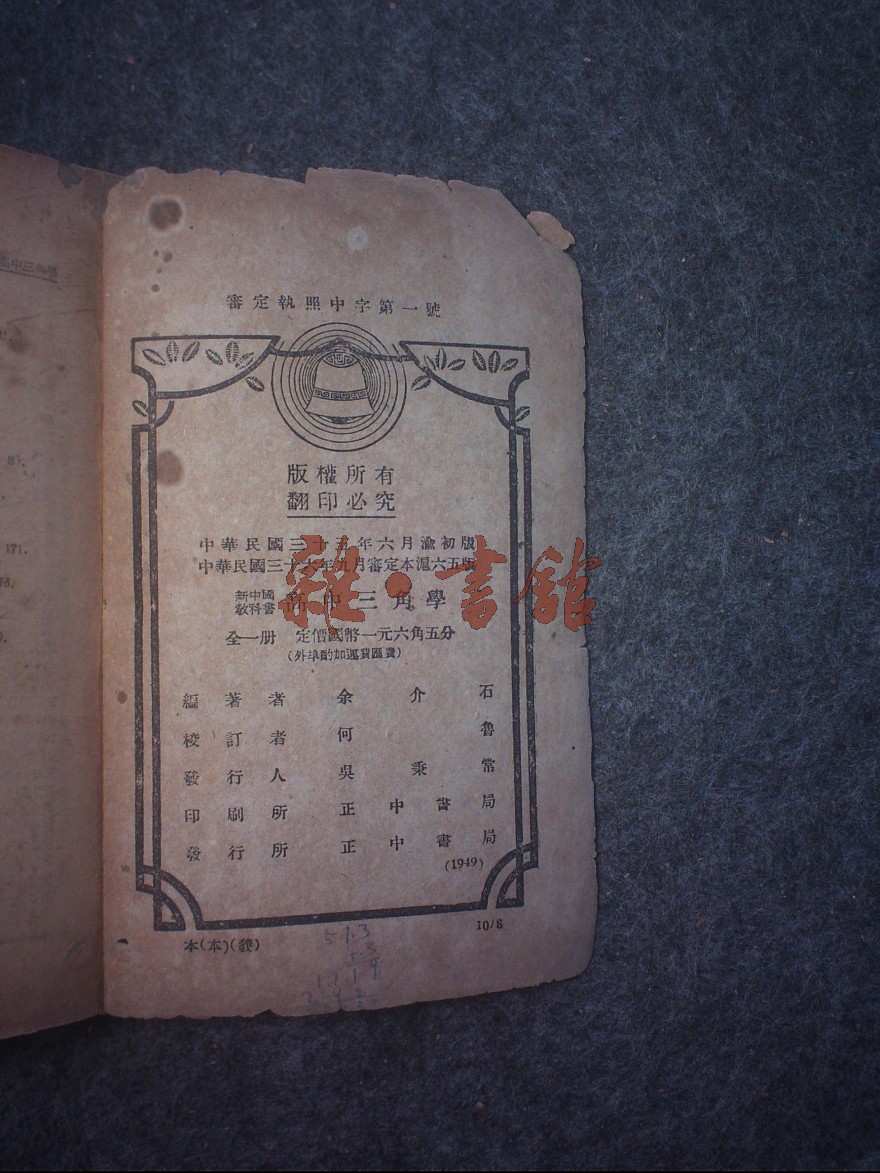 審定執照中字第一號
版權所有
翻印必究
中華民國三十五年六月渝初版
中華民國三十六年九月審定本滬六五版
新中國
教科書 高中三角學
全一册 定價國幣一元六角五分
(外埠酌加運費匯費)
編著者 余介石
校訂者 何魯
發行人 吳秉常
印刷所 正中書局
發行所 正中書局
(1949)
10/8
本(本)(義)
雜·書館
高中三角學
171.